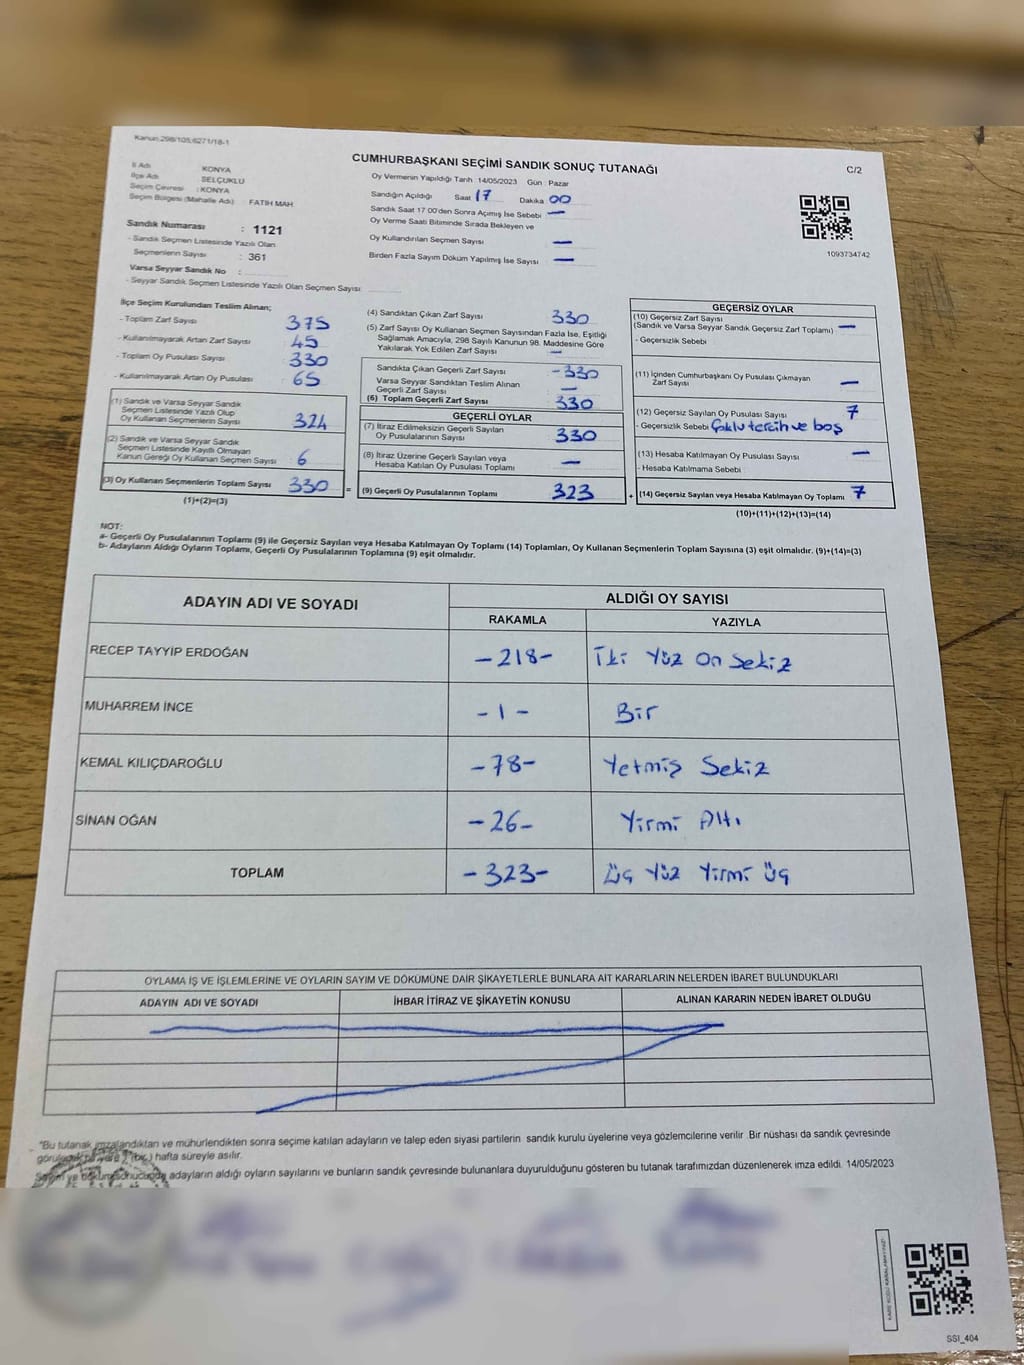 Kanun:298/105,6271/18-1
CUMHURBAŞKANI SEÇİMİ SANDIK SONUÇ TUTANAĞI
C/2
İl Adı KONYA
İlçe Adı SELÇUKLU
Seçim Çevresi : KONYA
Seçim Bölgesi (Mahalle Adı) : FATİH MAH.
Sandık Numarası : 1121
- Sandık Seçmen Listesinde Yazılı Olan
Seçmenlerin Sayısı : 361
Varsa Seyyar Sandık No :
- Seyyar Sandık Seçmen Listesinde Yazılı Olan Seçmen Sayısı
Oy Vermenin Yapıldığı Tarih : 14/05/2023 Gün : Pazar
Sandığın Açıldığı Saat 17 Dakika 00
Sandık Saat 17:00'den Sonra Açımış İse Sebebi —
Oy Verme Saati Bitiminde Sırada Bekleyen ve
Oy Kullandırılan Seçmen Sayısı —
Birden Fazla Sayım Döküm Yapılmış İse Sayısı —
1093734742
İlçe Seçim Kurulundan Teslim Alınan;
- Toplam Zarf Sayısı 375
- Kullanılmayarak Artan Zarf Sayısı 45
- Toplam Oy Pusulası Sayısı 330
- Kullanılmayarak Artan Oy Pusulası 65
(1) Sandık ve Varsa Seyyar Sandık
Seçmen Listesinde Yazılı Olup
Oy Kullanan Seçmenlerin Sayısı 324
(2) Sandık ve Varsa Seyyar Sandık
Seçmen Listesinde Kayıtlı Olmayan
Kanun Gereği Oy Kullanan Seçmen Sayısı 6
(3) Oy Kullanan Seçmenlerin Toplam Sayısı 330 =
(1)+(2)=(3)
(4) Sandıktan Çıkan Zarf Sayısı 330
(5) Zarf Sayısı Oy Kullanan Seçmen Sayısından Fazla İse, Eşitliği
Sağlamak Amacıyla, 298 Sayılı Kanunun 98. Maddesine Göre
Yakılarak Yok Edilen Zarf Sayısı —
Sandıkta Çıkan Geçerli Zarf Sayısı -330
Varsa Seyyar Sandıktan Teslim Alınan
Geçerli Zarf Sayısı —
(6) Toplam Geçerli Zarf Sayısı 330
GEÇERLİ OYLAR
(7) İtiraz Edilmeksizin Geçerli Sayılan
Oy Pusulalarının Sayısı 330
(8) İtiraz Üzerine Geçerli Sayılan veya
Hesaba Katılan Oy Pusulası Toplamı —
(9) Geçerli Oy Pusulalarının Toplamı 323 +
GEÇERSİZ OYLAR
(10) Geçersiz Zarf Sayısı
(Sandık ve Varsa Seyyar Sandık Geçersiz Zarf Toplamı) —
- Geçersizlik Sebebi
(11) İçinden Cumhurbaşkanı Oy Pusulası Çıkmayan
Zarf Sayısı —
(12) Geçersiz Sayılan Oy Pusulası Sayısı 7
- Geçersizlik Sebebi Çoklu tercih ve boş
(13) Hesaba Katılmayan Oy Pusulası Sayısı —
- Hesaba Katılmama Sebebi
(14) Geçersiz Sayılan veya Hesaba Katılmayan Oy Toplamı 7
(10)+(11)+(12)+(13)=(14)
NOT:
a- Geçerli Oy Pusulalarının Toplamı (9) ile Geçersiz Sayılan veya Hesaba Katılmayan Oy Toplamı (14) Toplamları, Oy Kullanan Seçmenlerin Toplam Sayısına (3) eşit olmalıdır. (9)+(14)=(3)
b- Adayların Aldığı Oyların Toplamı, Geçerli Oy Pusulalarının Toplamına (9) eşit olmalıdır.
ADAYIN ADI VE SOYADI
ALDIĞI OY SAYISI
RAKAMLA YAZIYLA
RECEP TAYYİP ERDOĞAN -218- İki Yüz On Sekiz
MUHARREM İNCE -1- Bir
KEMAL KILIÇDAROĞLU -78- Yetmiş Sekiz
SİNAN OĞAN -26- Yirmi Altı
TOPLAM -323- Üç Yüz Yirmi Üç
OYLAMA İŞ VE İŞLEMLERİNE VE OYLARIN SAYIM VE DÖKÜMÜNE DAİR ŞİKAYETLERLE BUNLARA AİT KARARLARIN NELERDEN İBARET BULUNDUKLARI
ADAYIN ADI VE SOYADI İHBAR İTİRAZ VE ŞİKAYETİN KONUSU ALINAN KARARIN NEDEN İBARET OLDUĞU
"Bu tutanak imzalandıktan ve mühürlendikten sonra seçime katılan adayların ve talep eden siyasi partilerin sandık kurulu üyelerine veya gözlemcilerine verilir. Bir nüshası da sandık çevresinde
hafta süreyle asılır.
adayların aldığı oyların sayılarını ve bunların sandık çevresinde bulunanlara duyurulduğunu gösteren bu tutanak tarafımızdan düzenlenerek imza edildi. 14/05/2023
SSI_404